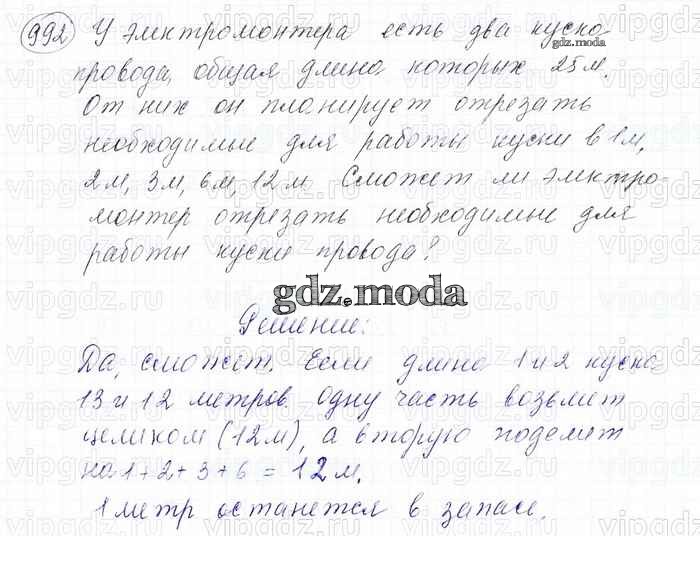 992 У электромонтера есть два куска
gdz.moda
провода, общая длина которых 25 м.
От них он планирует отрезать
необходимые для работы куски в 1 м,
2 м, 3 м, 6 м, 12 м. Сможет ли электро-
монтер отрезать необходимые для
работы куски провода?
gdz.moda
Решение:
Да, сможет. Если длина 1 и 2 куска
13 и 12 метров одну часть возьмет
целиком (12 м), а вторую поделит
на 1 + 2 + 3 + 6 = 12 м.
1 метр останется в запасе.